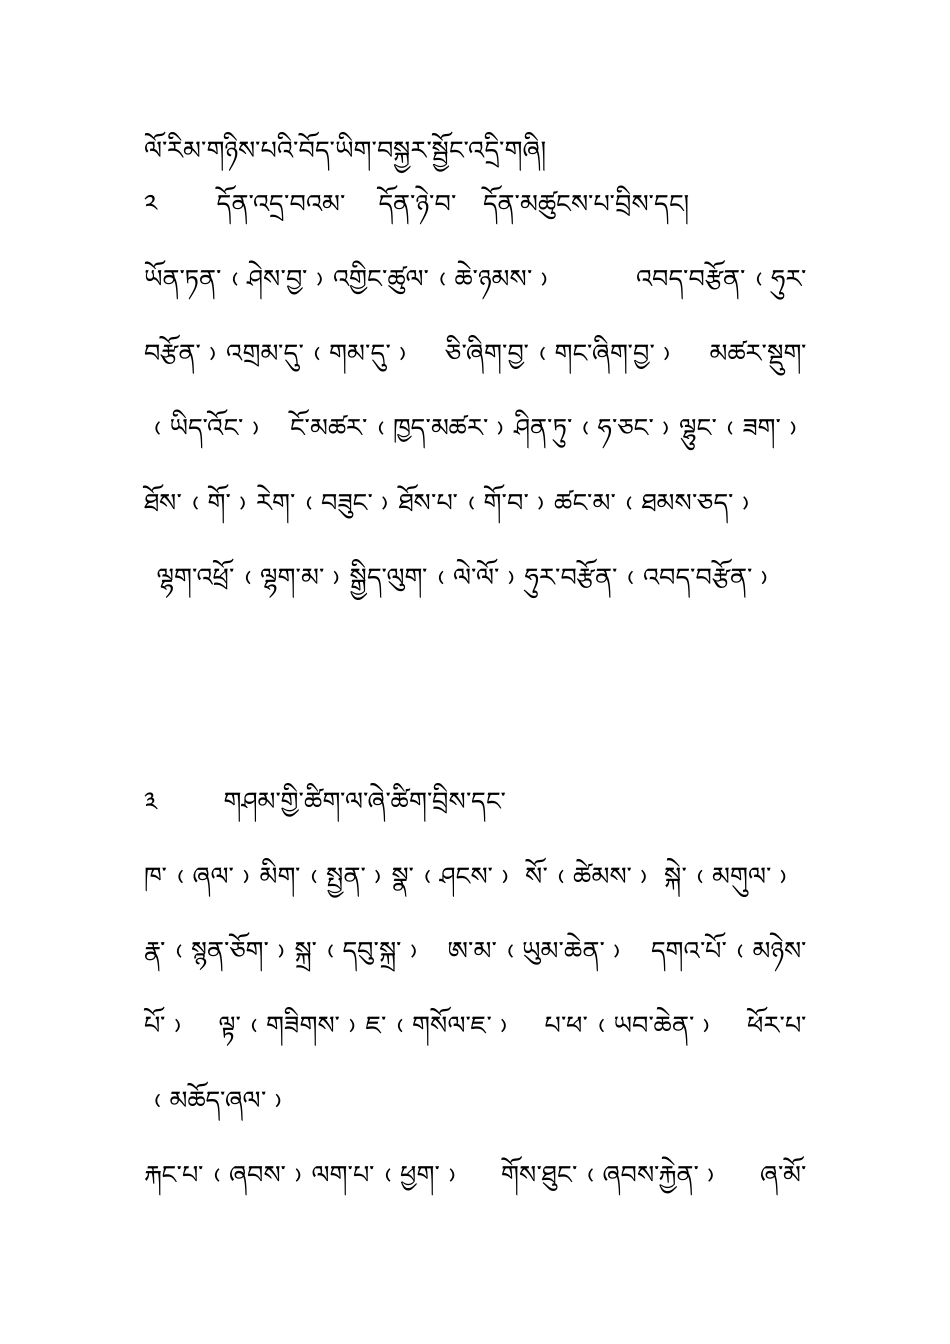 ལོ་རིམ་གཉིས་པའི་བོད་ཡིག་བསྐྱར་སྦྱོང་འདྲི་གཞི།
༢ དོན་འདྲ་བའམ་ དོན་ཉེ་བ་ དོན་མཚུངས་པ་བྲིས་དང།
ཡོན་ཏན་（ཤེས་བྱ་）འགྱིང་ཚུལ་（ཆེ་ཉམས་） འབད་བརྩོན་（ཧུར་
བརྩོན་）འགྲམ་དུ་（གམ་དུ་） ཅི་ཞིག་བྱ་（གང་ཞིག་བྱ་） མཚར་སྡུག་
（ཡིད་འོང་） ངོ་མཚར་（ཁྱད་མཚར་）ཤིན་ཏུ་（ཧ་ཅང་）ལྷུང་（ཟག་）
ཐོས་（གོ་）རེག་（བཟུང་）ཐོས་པ་（གོ་བ་）ཚང་མ་（ཐམས་ཅད་）
ལྷག་འཕྲོ་（ལྷག་མ་）སྒྱིད་ལུག་（ལེ་ལོ་）ཧུར་བརྩོན་（འབད་བརྩོན་）
༣ གཤམ་གྱི་ཚིག་ལ་ཞེ་ཚིག་བྲིས་དང་
ཁ་（ཞལ་）མིག་（སྤྱན་）སྣ་（ཤངས་） སོ་（ཚེམས་） སྐེ་（མགུལ་）
རྣ་（སྙན་ཅོག་）སྐྲ་（དབུ་སྐྲ་） ཨ་མ་（ཡུམ་ཆེན་） དགའ་པོ་（མཉེས་
པོ་） ལྟ་（གཟིགས་）ཇ་（གསོལ་ཇ་） པ་ཕ་（ཡབ་ཆེན་） ཕོར་པ་
（མཆོད་ཞལ་）
རྐང་པ་（ཞབས་）ལག་པ་（ཕྱག་） གོས་ཐུང་（ཞབས་རྐྱེན་） ཞ་མོ་